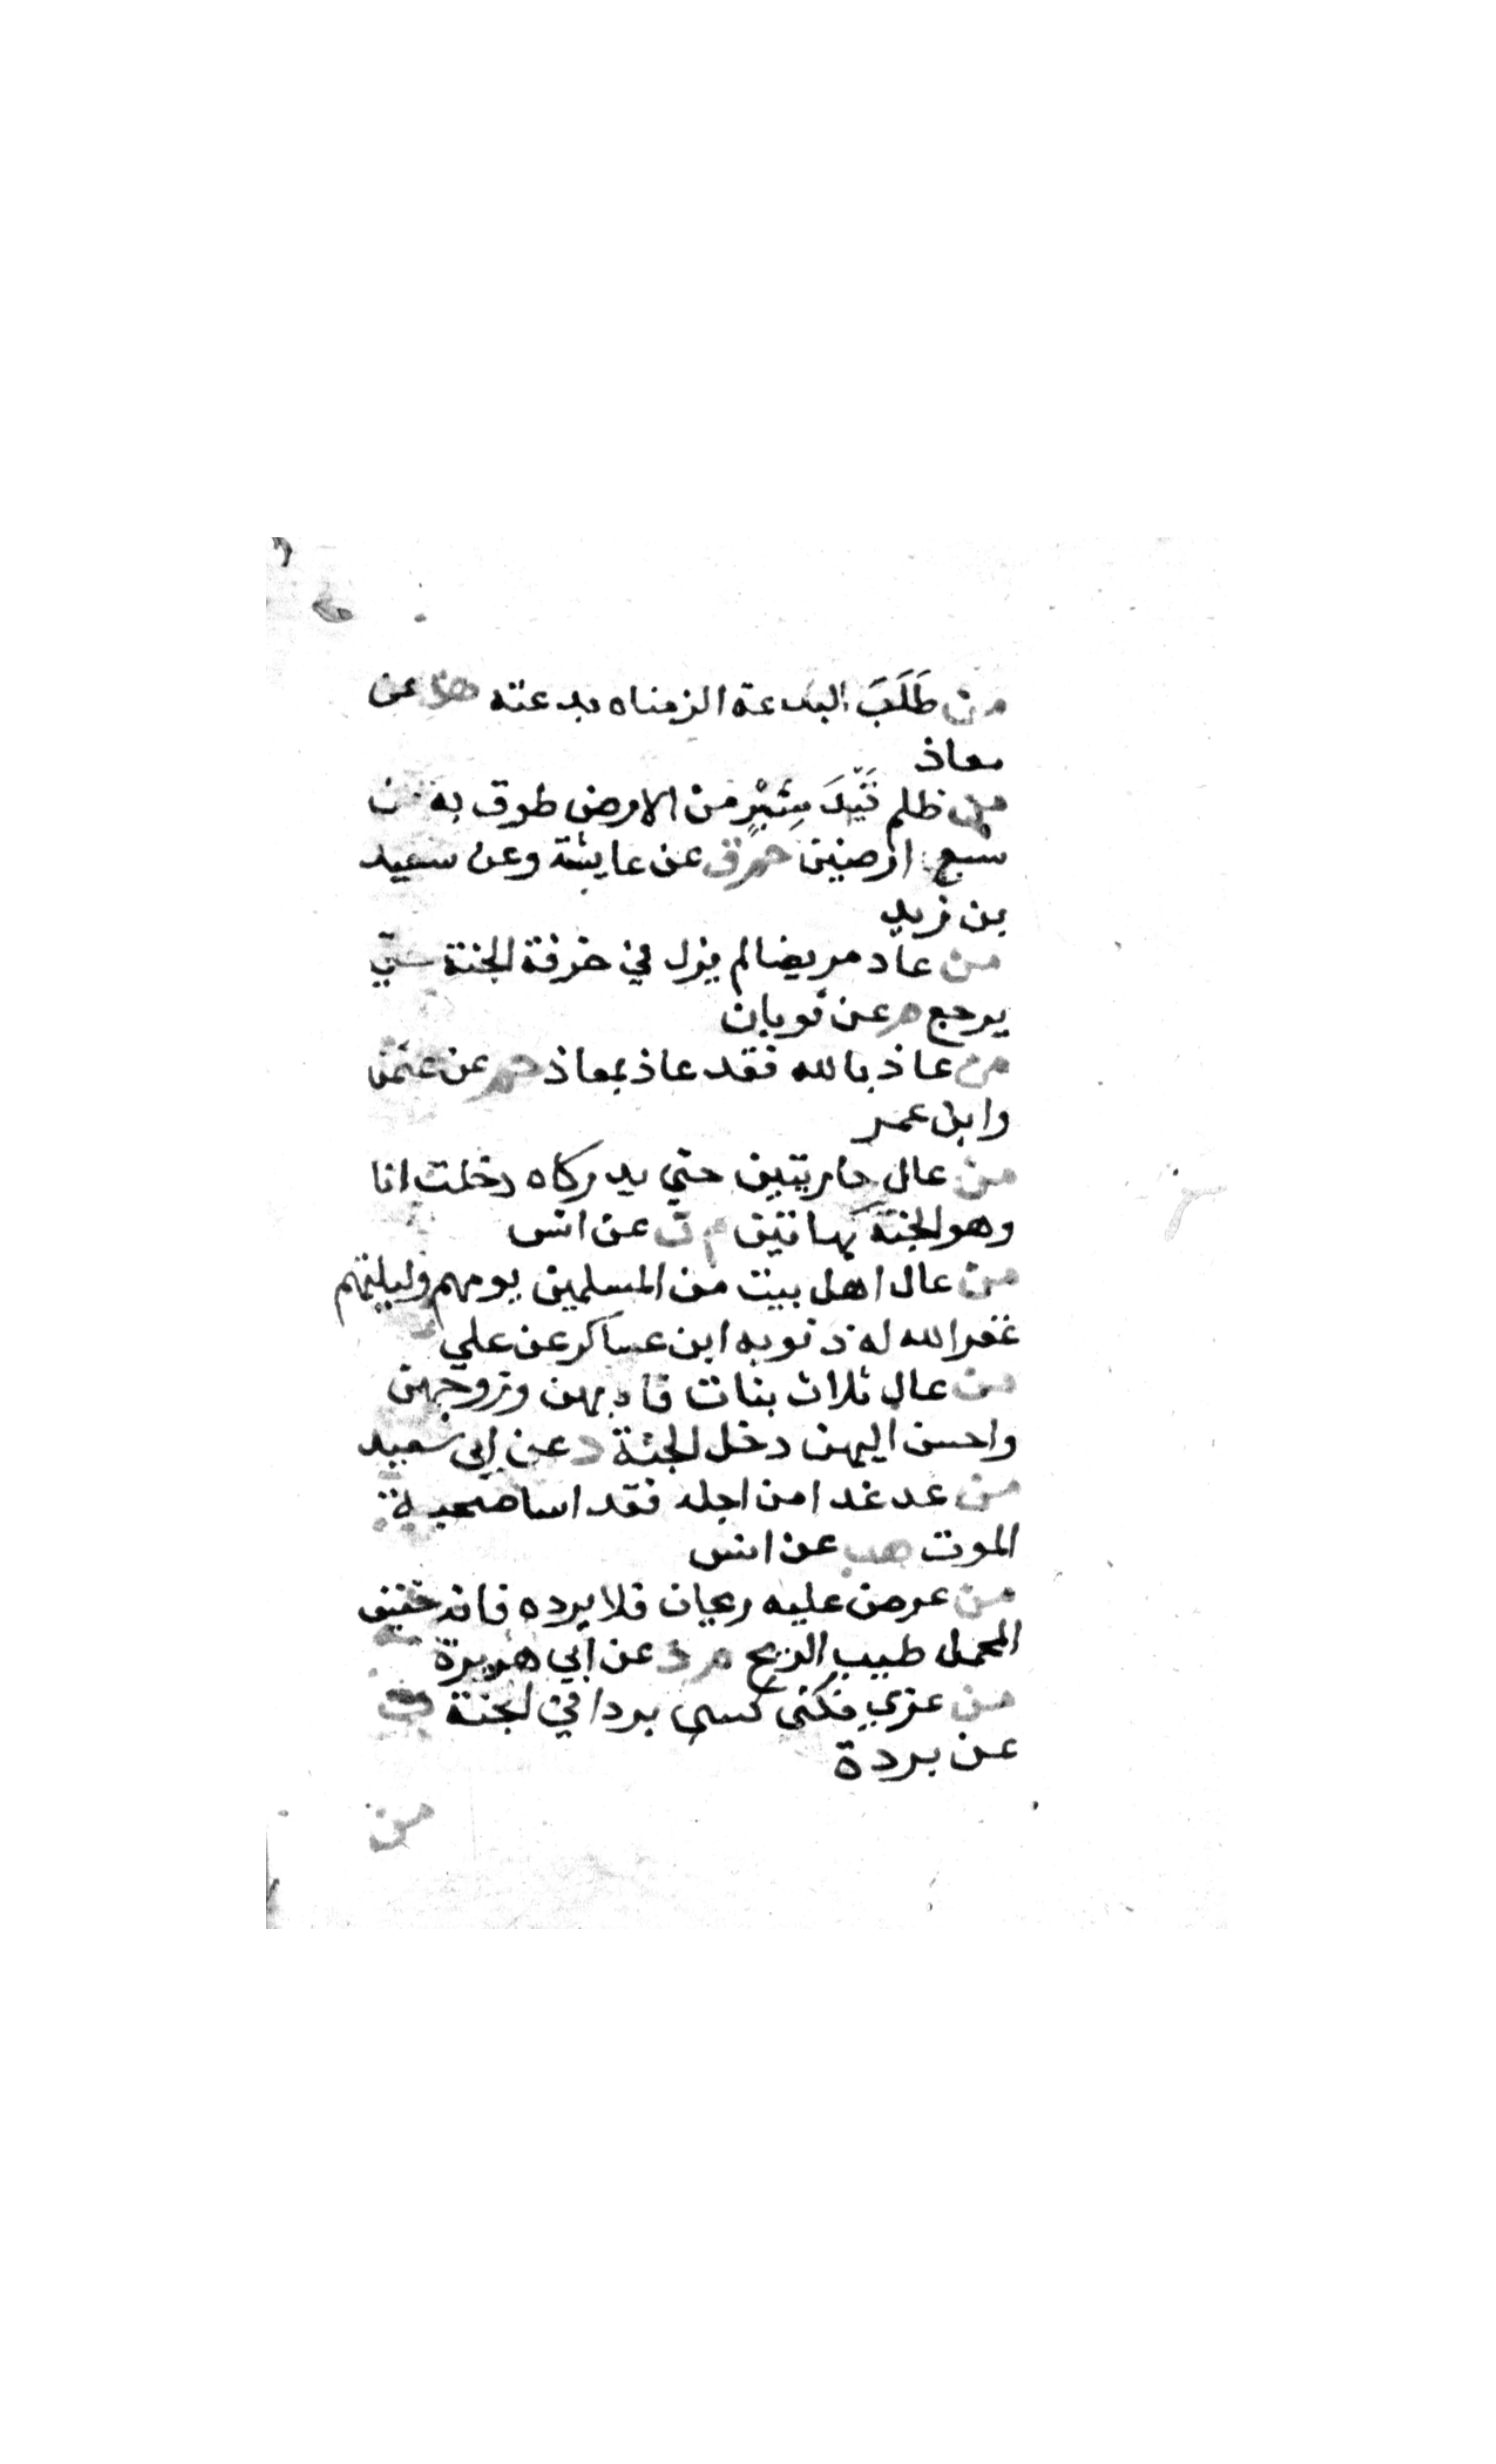 من طَلَبَ البدعة الزمناه بدعته هق عن
معاذ
من ظلم قَيْدَ شِبْرٍ من الارض طوق به من
سبع ارضين حم ق عن عايشة وعن سعيد
بن زيد
من عاد مريضا لم يزل في خرفة الجنة حتي
يرجع م عن ثوبان
من عاذ بالله فقد عاذ بمعاذ حم عن عثمن
وابن عمر
من عال جاريتين حتي يدركاه دخلت انا
وهو الجنة كهاتين م ت عن انس
من عال اهل بيت من المسلمين يومهم وليلتهم
غفر الله له ذنوبه ابن عساكر عن علي
من عال ثلاث بنات فادبهن وتزوجهن
واحسن اليهن دخل الجنة د عن ابي سعيد
من عد غدا من اجله فقد اسا صحبة
الموت هب عن انس
من عرض عليه ريحان فلا يرده فانه خفيف
المحمل طيب الريح م د عن ابي هريرة
من عزي ثكلى كسي بردا في الجنة ت
عن بردة
من